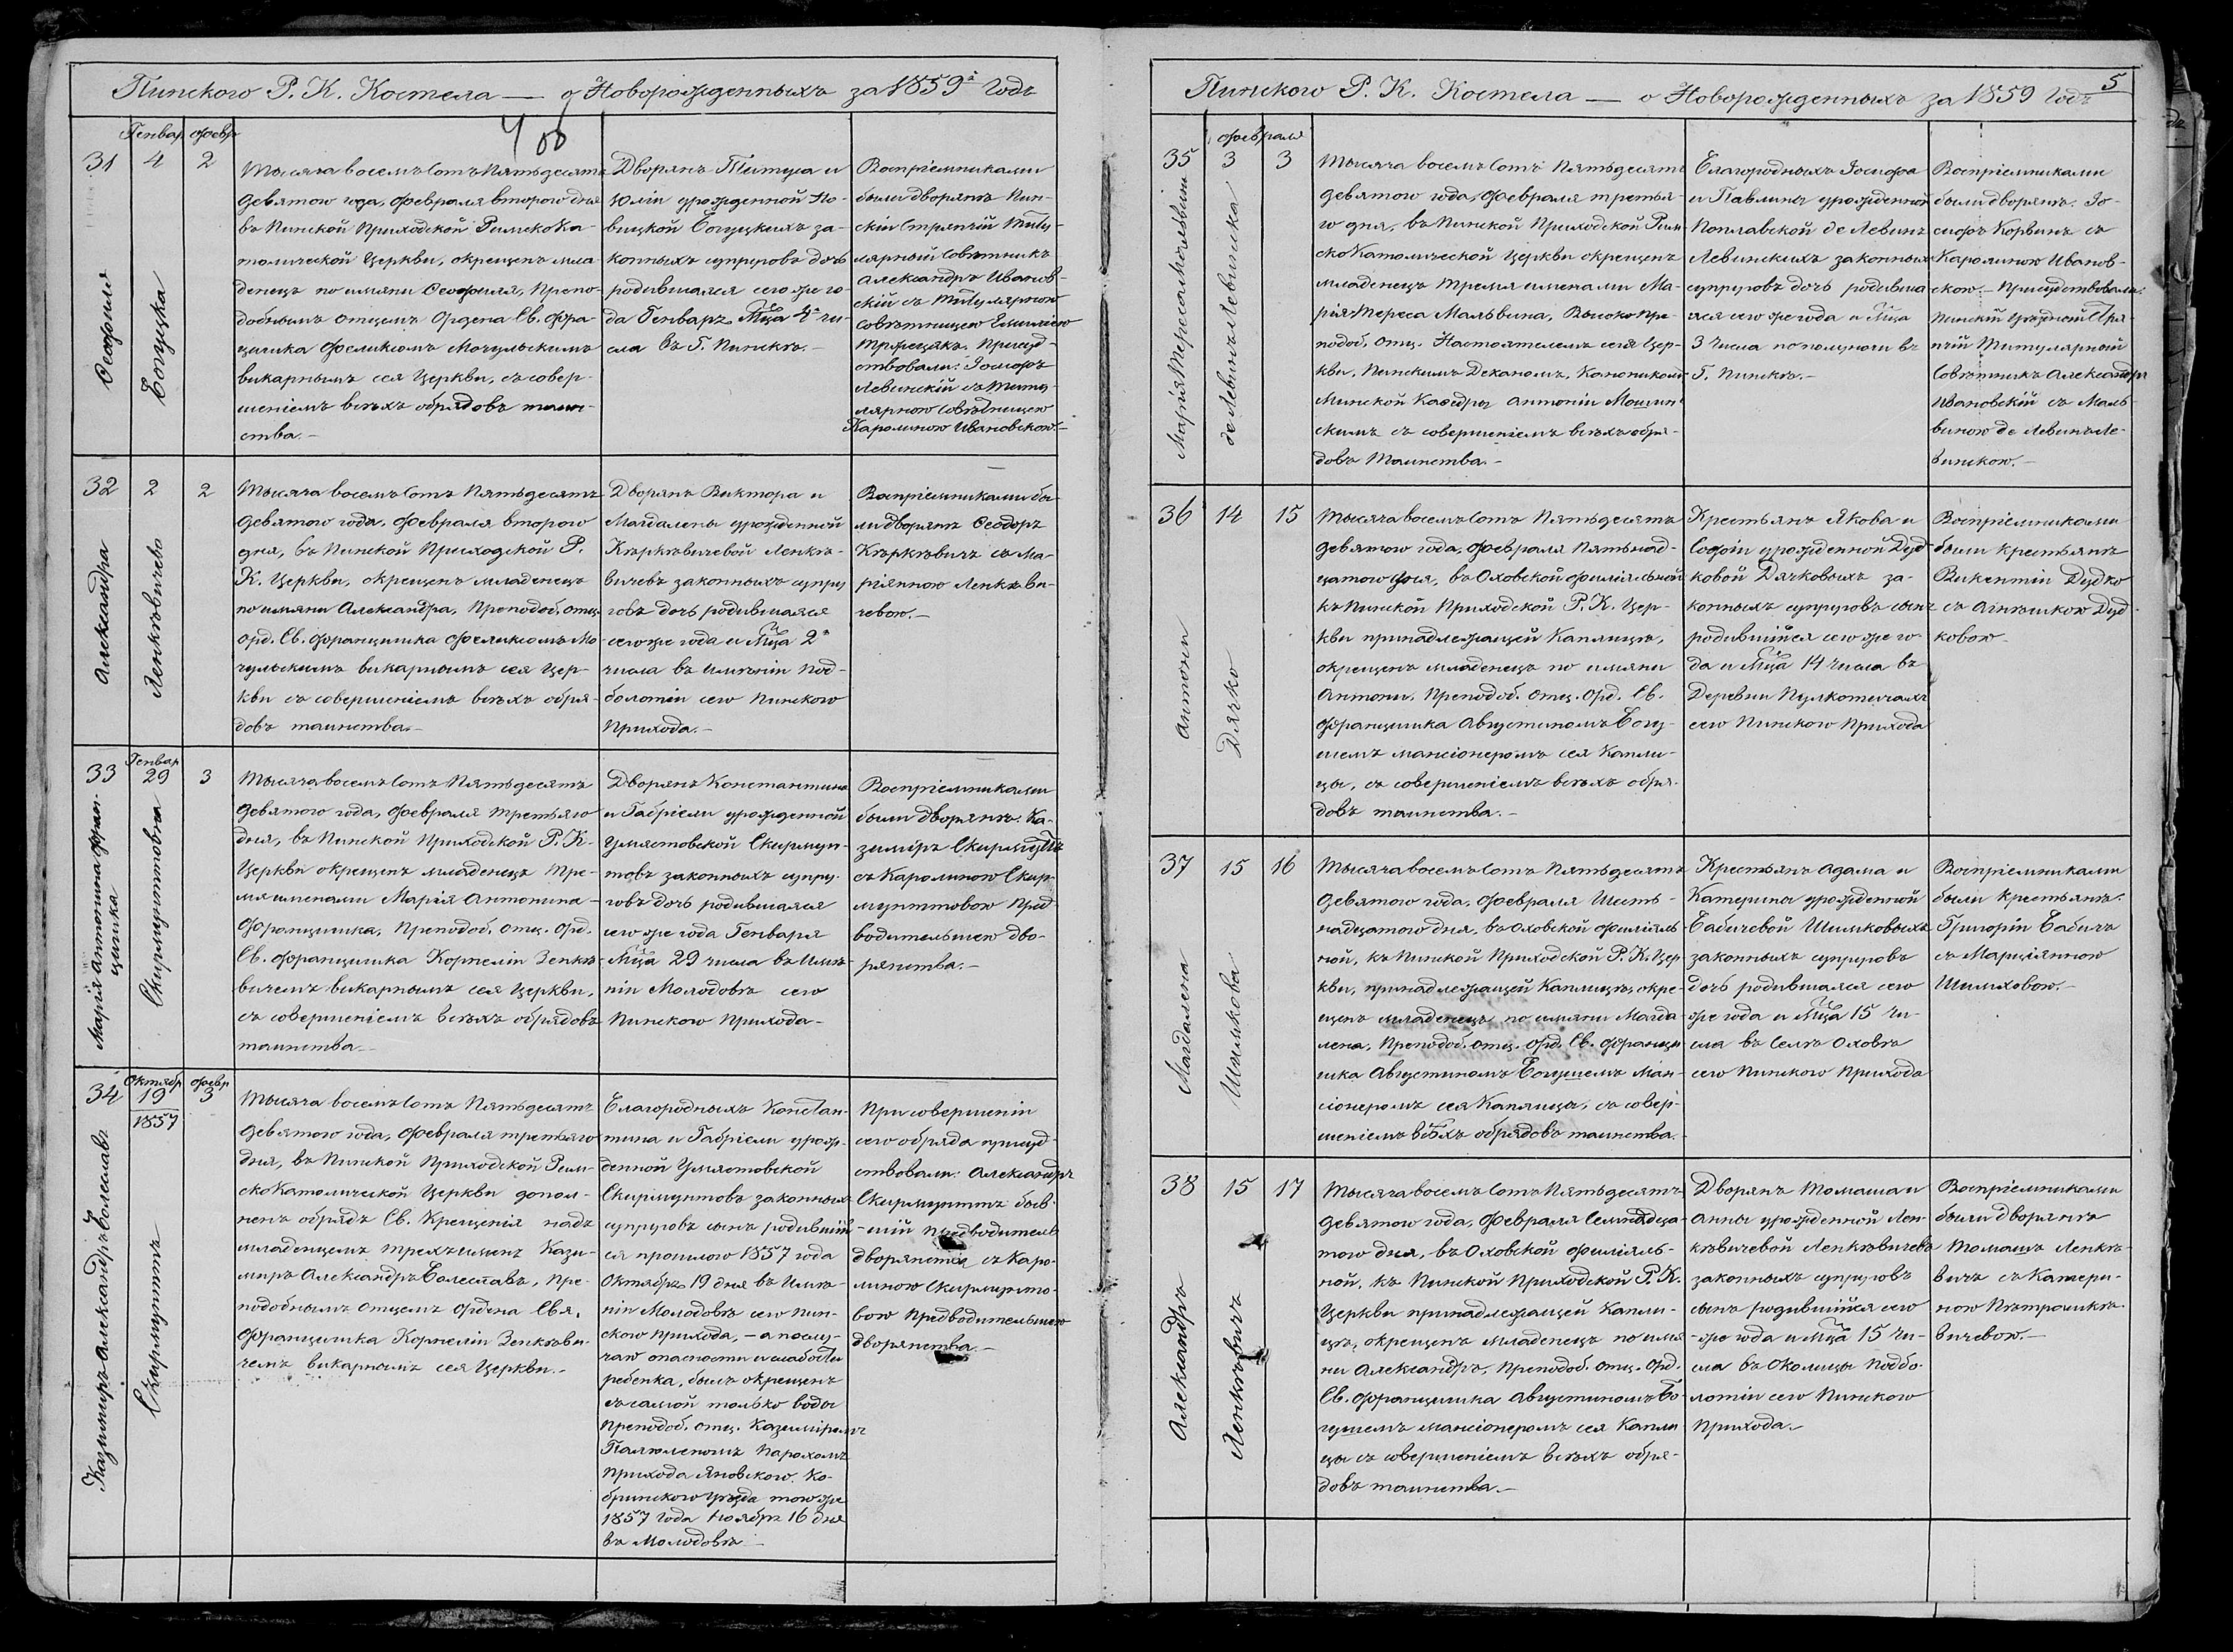 Пинского Р. К. Костела — о Новорожденныхъ за 1859й годъ
Генвар Февр
31 4 2
Ѳеофилія
Богуцка
Тысяча восемъ сотъ Пятьдесятъ
девятого года, Февраля второго дня
въ Пинской Приходской Римско Ка-
толической Церкви, окрещенъ мла-
денецъ по имяни Ѳеофилія, Препо-
добнымъ отцемъ Ордена Св. Фра-
нцишка Феликсомъ Мочульскимъ
викарнымъ сея Церкви, съ совер-
шеніемъ всѣхъ обрядовъ таин-
ства.—
Дворянъ Титуса и
Юліи урожденной Но-
вицкой Богуцкихъ за-
конныхъ супруговъ дочь
родившаяся сего же го-
да Генваря Мца 4го чи-
сла въ Г. Пинскѣ.—
Воспріемниками
были дворянъ Пин-
скій Стряпчій Титу-
лярный Совѣтникъ
Александръ Иванов-
скій съ Титулярною
Совѣтницею Емиліею
Присуд-
ствовали: Іосифъ
Левинскій съ Титу-
лярною Совѣтницею
Каролиною Ивановскою.—
32 2 2
Александра
Ленкѣвичева
Тысяча восемъ сотъ Пятьдесятъ
девятого года, Февраля второго
дня, въ Пинской Приходской Р.
К. Церкви, окрещенъ младенецъ
по имяни Александра, Преподоб. отц.
орд. Св. Францишка Феликсомъ Мо-
чульскимъ викарнымъ сея Цер-
кви съ совершеніемъ всѣхъ обря-
довъ таинства.—
Дворянъ Виктора и
Магдалены урожденной
Кѣркѣвичевой Ленкѣ-
вичевъ законныхъ супру
говъ дочь родившаяся
сего же года и Мца 2го
числа въ имѣніи Под-
болотіи сего Пинского
Прихода.—
Воспріемниками бы-
ли дворянъ Ѳеодоръ
Кѣркѣвичъ съ Ма-
ріянною Ленкѣви-
чевою.—
Генвар
33 29 3
Марія Антонина Фран-
цишка
Скирмунттовна
Тысяча восемъ сотъ Пятьдесятъ
девятого года, Февраля третьяго
дня, въ Пинской Приходской Р. К.
Церкви окрещенъ младенецъ тре-
мя именами Марія Антонина
Францишка, Преподоб. отц. орд.
Св. Францишка Корнеліи Зенкѣ-
вичемъ викарнымъ сея Церкви,
съ совершеніемъ всѣхъ обрядовъ
таинства.—
Дворянъ Константина
и Габріели урожденной
Умястовской Скирмун-
товъ законныхъ супру-
говъ дочь родившаяся
сего же года Генваря
Мца 29 числа въ имѣ-
ніи Молодовѣ сего
Пинского Прихода—
Воспріемниками
были дворянъ: Ка-
зиміръ Скирмунтъ
съ Каролиною Скир-
мунттовою Пред-
водительшею дво-
рянства.—
Октябр Февр
34 19 3
1857
Казимиръ Александръ Болеславъ
Скирмунттъ
Тысяча восемъ сотъ Пятьдесятъ
девятого года, Февраля третьяго
дня, въ Пинской Приходской Рим-
ско Католической Церкви допол-
ненъ обрядъ Св. Крещенія надъ
младенцемъ трехъ именъ Кази-
миръ Александръ Болеславъ, Пре-
подобнымъ отцемъ Ордена Свя.
Францишка Корнеліи Зенкѣви-
чемъ викарнымъ сея Церкви.—
Благородныхъ Констан-
тина и Габріели урож-
денной Умястовской
Скирмунтовъ законныхъ
супруговъ сынъ родивший
ся прошлого 1857 года
Октября 19 дня въ имѣ-
ніи Молодовѣ сего Пин-
ского прихода, — а по слу-
чаю опасности и слабости
ребенка, былъ окрещенъ
съ самой только воды
Преподоб. отц. Казиміромъ
Парохомъ
прихода Яновского, Ко-
бринского уѣзда того же
1857 года Ноября 16 дня
въ Молодовѣ—
При совершеніи
сего обряда присуд-
ствовали: Александръ
Скирмунттъ быв-
шій предводитель
дворянства съ Каро-
линою Скирмунто-
вою Предводительшею
дворянства.—
Пинского Р. К. Костела — о Новорожденныхъ за 1859 годъ
5
Февраля
35 3 3
Марія Тереса Мальвина
де Левинъ Левинска
Тысяча восемъ сотъ Пятьдесятъ
девятого года, Февраля третья-
го дня, въ Пинской Приходской Рим-
ско Католической Церкви окрещенъ
младенецъ тремя именами Ма-
рія Тереса Мальвина, Высоко пре-
подоб. отц. Настоятелемъ сея Цер-
кви, Пинскимъ Деканомъ, Каноникомъ
Минской Кафедры Антоніи Мошин-
скимъ съ совершеніемъ всѣхъ обря-
довъ Таинства.—
Благородныхъ Іосифа
и Павлины урожденной
Поплавской де Левинъ
Левинскихъ законныхъ
супруговъ дочь родивша
яся сего же года и Мца
3 числа по полуночи въ
Г. Пинскѣ.—
Воспріемниками
были дворянъ: Іо-
сифъ Корвинъ съ
Каролиною Иванов-
скою.— Присудствовали:
Пинскій Уѣздный Стря-
пчій Титулярный
Совѣтникъ Александръ
Ивановскій съ Маль-
виною де Левинъ Ле-
винскою.—
36 14 15
Антони
Дячко
Тысяча восемъ сотъ Пятьдесятъ
девятого года, Февраля Пятьнад-
цатого дня, въ Оховской филіяльной
къ Пинской Приходской Р. К. Цер-
кви принадлежащей Каплицѣ,
окрещенъ младенецъ по имяни
Антони, Преподоб. отц. орд. Св.
Францишка Августиномъ Богу-
шемъ мансіонеромъ сея Капли-
цы, съ совершеніемъ всѣхъ обря-
довъ таинства.—
Крестьянъ Якова и
Софіи урожденной Дуд
ковой Дячковыхъ за-
конныхъ супруговъ сынъ
родившійся сего же го-
да и Мца 14 числа въ
Деревни Пулкотичахъ
сего Пинского Прихода
Воспріемниками
были крестьянъ
Викентіи Дудко
съ Агнѣшкою Дуд-
ковою
37 15 16
Магдалена
Шишкова
Тысяча восемъ сотъ Пятьдесятъ
девятого года, Февраля Шесть-
надцатого дня, въ Оховской филіяль
ной, къ Пинской Приходской Р. К. Цер-
кви, принадлежащей Каплицѣ, окре-
щенъ младенецъ по имяни Магда
лена, Преподоб. отц. орд. Св. Францы
шка Августиномъ Богушемъ ман-
сіонеромъ сея Каплицы, съ совер-
шеніемъ всѣхъ обрядовъ таинства.
Крестьянъ Адама и
Катерины урожденной
Бабичевой Шишковыхъ
законныхъ супруговъ
дочь родившаяся сего
же года и Мца 15 чи-
сла въ Селѣ Оховѣ
сего Пинского Прихода
Воспріемниками
были Крестьянъ:
Григоріи Бабичъ
съ Марціянною
Шишковою.—
38 15 17
Александръ
Ленкѣвичъ
Тысяча восемъ сотъ Пятьдесятъ
девятого года, Февраля Семнадца-
того дня, въ Оховской филіяль-
ной, къ Пинской Приходской Р. К.
Церкви принадлежащей Капли-
цѣ, окрещенъ младенецъ по имя
ни Александръ, Преподоб. отц. орд.
Св. Францишка Августиномъ Бо-
гушемъ мансіонеромъ сея Капли
цы съ совершеніемъ всѣхъ обря-
довъ таинства.—
Дворянъ Томаша и
Анны урожденной Лен-
кѣвичевой Ленкѣвичевъ
законныхъ супруговъ
сынъ родившійся сего
же года и Мца 15 чи-
сла въ Околицы Подбо-
лотіи сего Пинского
Прихода.—
Воспріемниками
были дворянъ
Томашъ Ленкѣ-
вичъ съ Катери-
ною Пѣтрашкѣ-
вичевою.—